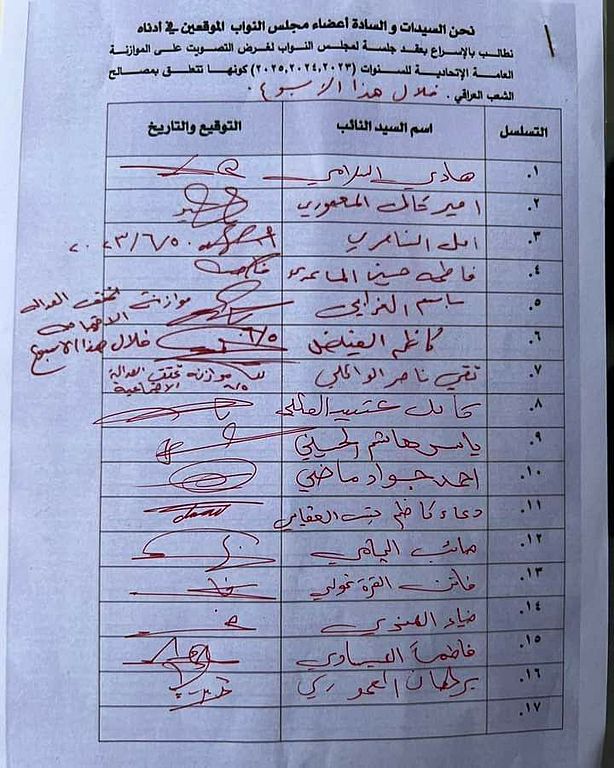 نحن السيدات و السادة أعضاء مجلس النواب الموقعين في ادناه
نطالب بالإسراع بعقد جلسة لمجلس النواب لغرض التصويت على الموازنة
العامة الإتحادية للسنوات (٢٠٢٥،٢٠٢٤،٢٠٢٣) كونها تتعلق بمصالح
الشعب العراقي . خلال هذا الأسبوع .
التسلسل اسم السيد النائب التوقيع والتاريخ
.١ هادي السلامي
.٢ امير المعموري
.٣ امل الناصري ٢٠٢٣/٦/٥
.٤ فاطمة حسين الساعدي
.٥ باسم الغرابي موازنة تحقق العدالة
.٦ كاظم الفياض ٦/٥ خلال هذا الاسبوع
.٧ تقي ناصر الوائلي موازنة تحقق العدالة الاجتماعية
.٨ كامل العكيلي
.٩ ياسر هاشم الحسيني
.١٠ احمد جواد ماضي
.١١ دعاء كاظم
.١٢
.١٣ فاتن القره غولي
.١٤ ضياء الهندي
.١٥ فاطمة العيساوي
.١٦ برهان المعموري
.١٧